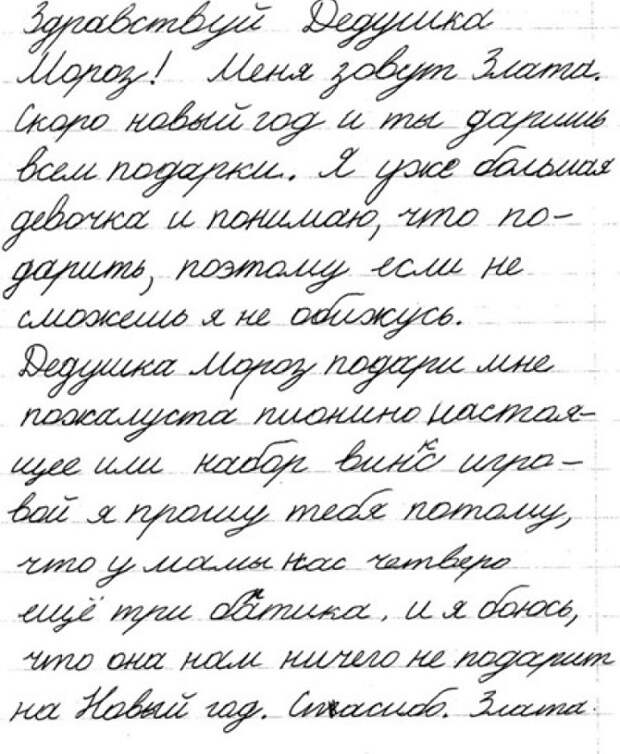 Здравствуй Дедушка
Мороз! Меня зовут Злата.
Скоро новый год и ты даришь
всем подарки. Я уже большая
девочка и понимаю, что по-
дарить, поэтому если не
сможешь я не обижусь.
Дедушка Мороз подари мне
пожалуста пионино настоя-
щее или набор винкс игро-
вой я прошу тебя потому,
что у мамы нас четверо
ещё три братика, и я боюсь,
что она нам ничего не подарит
на Новый год. Спасибо. Злата.